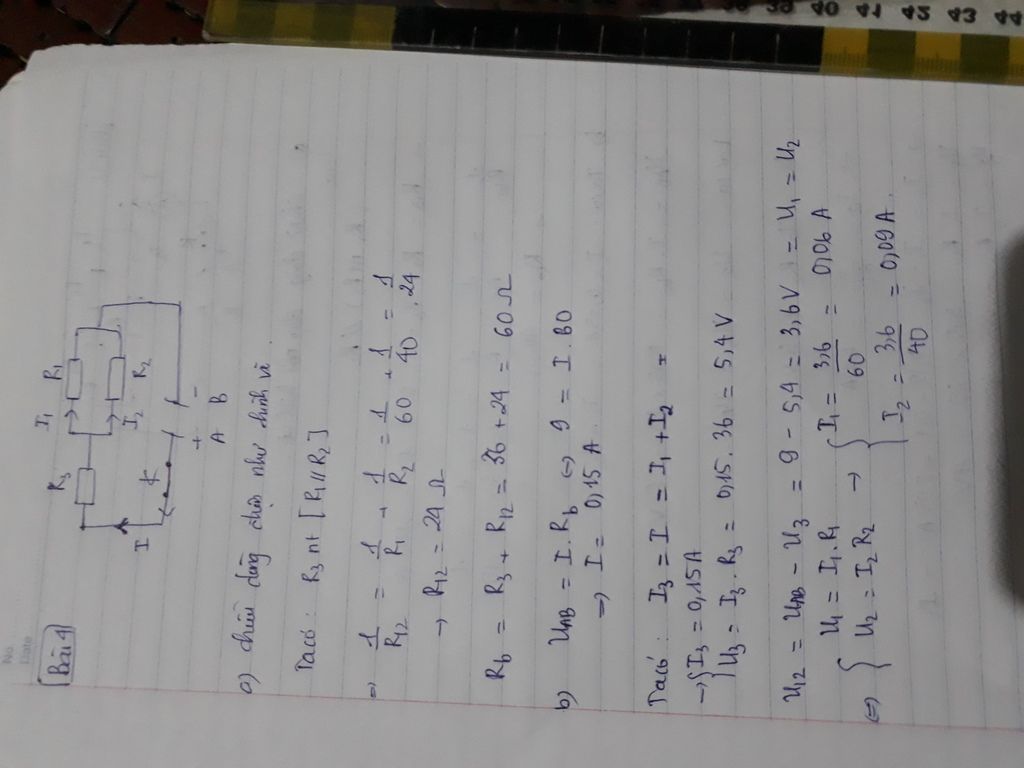 No
Date
Bài 4
R3 I1 R1
I2 R2
I K
+ -
A B
a) chiều dòng điện như hình vẽ
Ta có: R3 nt [R1 // R2]
=> 1/R12 = 1/R1 + 1/R2 = 1/60 + 1/40 = 1/24
→ R12 = 24 Ω
Rb = R3 + R12 = 36 + 24 = 60 Ω
b) UAB = I. Rb <=> 9 = I. 60
=> I = 0,15 A
Ta có: I3 = I = I1 + I2 =
→ { I3 = 0,15A
U3 = I3. R3 = 0,15. 36 = 5,4 V
U12 = UAB - U3 = 9 - 5,4 = 3,6 V = U1 = U2
<=> { U1 = I1. R1 → { I1 = 3,6/60 = 0,06 A
U2 = I2 R2 I2 = 3,6/40 = 0,09A
40 41 43 44